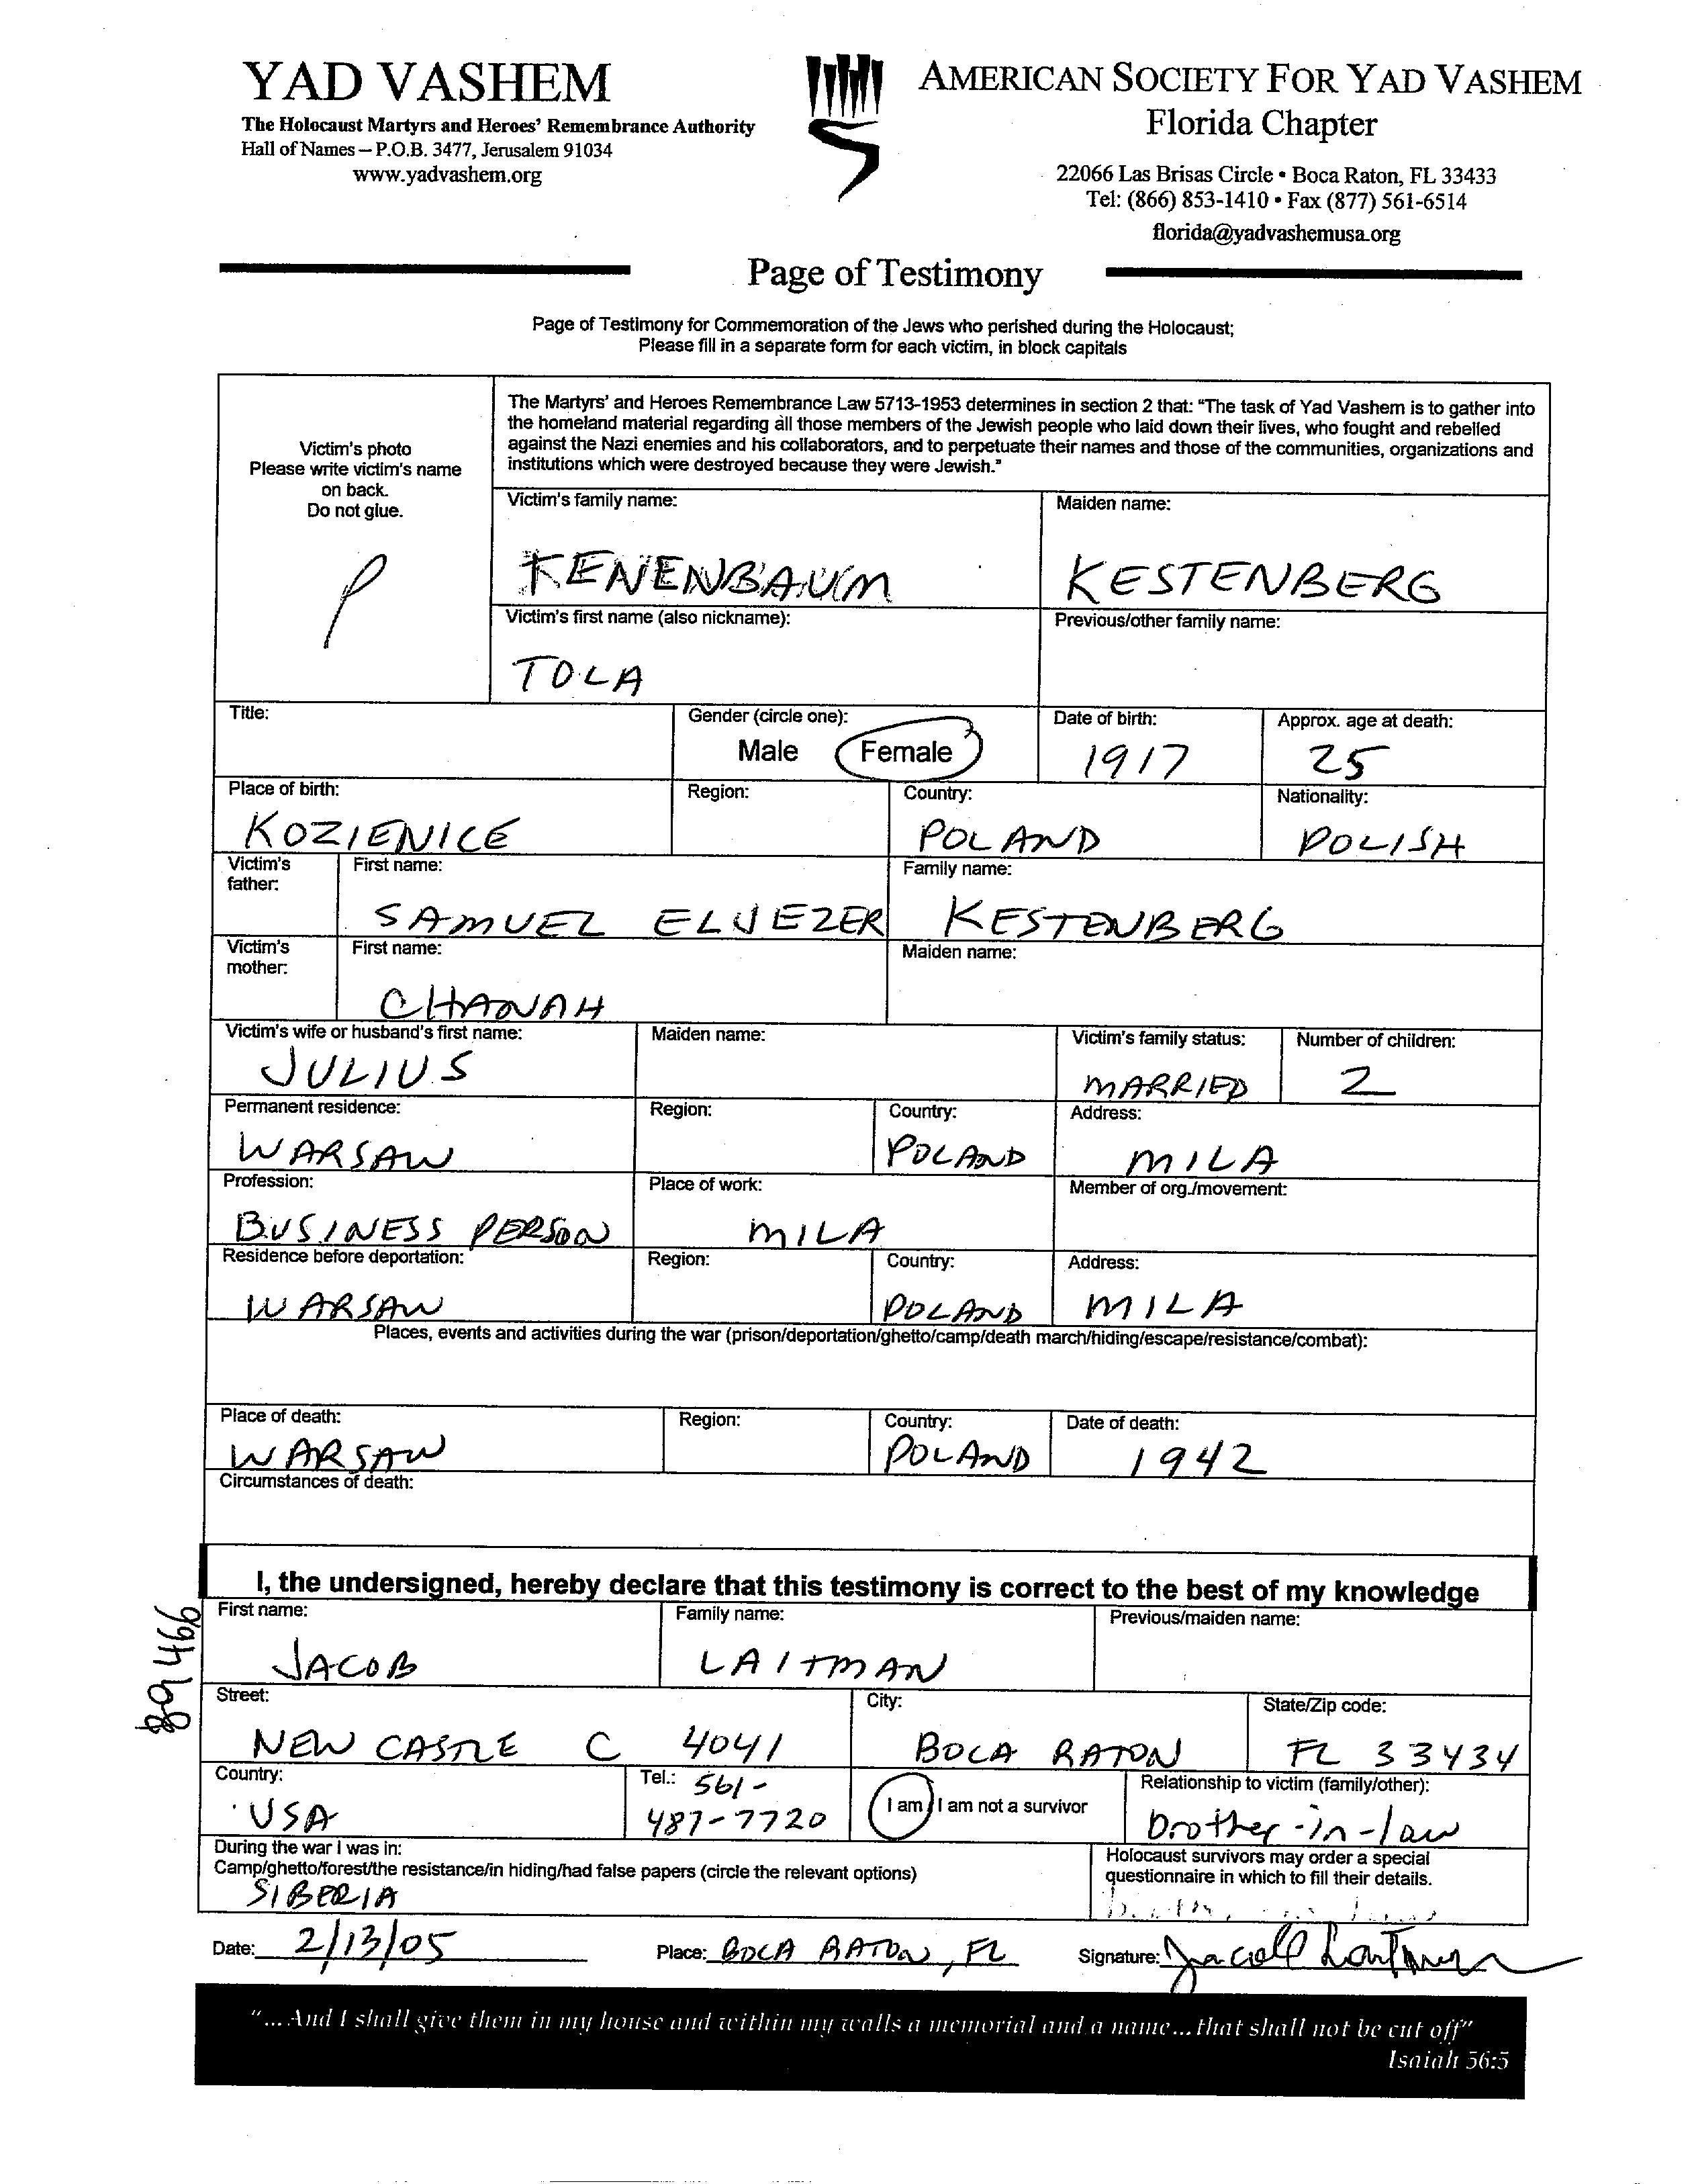 YAD VASHEM
The Holocaust Martyrs and Heroes' Remembrance Authority
Hall of Names – P.O.B. 3477, Jerusalem 91034
www.yadvashem.org
AMERICAN SOCIETY FOR YAD VASHEM
Florida Chapter
22066 Las Brisas Circle • Boca Raton, FL 33433
Tel: (866) 853-1410 • Fax (877) 561-6514
florida@yadvashemusa.org
Page of Testimony
Page of Testimony for Commemoration of the Jews who perished during the Holocaust;
Please fill in a separate form for each victim, in block capitals
Victim's photo
Please write victim's name
on back.
Do not glue.
The Martyrs' and Heroes Remembrance Law 5713-1953 determines in section 2 that: "The task of Yad Vashem is to gather into
the homeland material regarding all those members of the Jewish people who laid down their lives, who fought and rebelled
against the Nazi enemies and his collaborators, and to perpetuate their names and those of the communities, organizations and
institutions which were destroyed because they were Jewish."
Victim's family name: Maiden name:
KENENBAUM KESTENBERG
Victim's first name (also nickname): Previous/other family name:
TOLA
Title: Gender (circle one): Date of birth: Approx. age at death:
Male Female 1917 25
Place of birth: Region: Country: Nationality:
KOZIENICE POLAND POLISH
Victim's father: First name: Family name:
SAMUEL ELIEZER KESTENBERG
Victim's mother: First name: Maiden name:
CHANAH
Victim's wife or husband's first name: Maiden name: Victim's family status: Number of children:
JULIUS MARRIED 2
Permanent residence: Region: Country: Address:
WARSAW POLAND MILA
Profession: Place of work: Member of org./movement:
BUSINESS PERSON MILA
Residence before deportation: Region: Country: Address:
WARSAW POLAND MILA
Places, events and activities during the war (prison/deportation/ghetto/camp/death march/hiding/escape/resistance/combat):
Place of death: Region: Country: Date of death:
WARSAW POLAND 1942
Circumstances of death:
I, the undersigned, hereby declare that this testimony is correct to the best of my knowledge
First name: Family name: Previous/maiden name:
JACOB LAITMAN
Street: City: State/Zip code:
NEW CASTLE C 4041 BOCA RATON FL 33434
Country: Tel.: 561-
USA 487-7720 I am / I am not a survivor
Relationship to victim (family/other):
brother-in-law
During the war I was in:
Camp/ghetto/forest/the resistance/in hiding/had false papers (circle the relevant options)
SIBERIA
Holocaust survivors may order a special
questionnaire in which to fill their details.
Date: 2/13/05 Place: BOCA RATON, FL Signature: Jacob Laitman
"...And I shall give them in my house and within my walls a memorial and a name...that shall not be cut off"
Isaiah 56:5